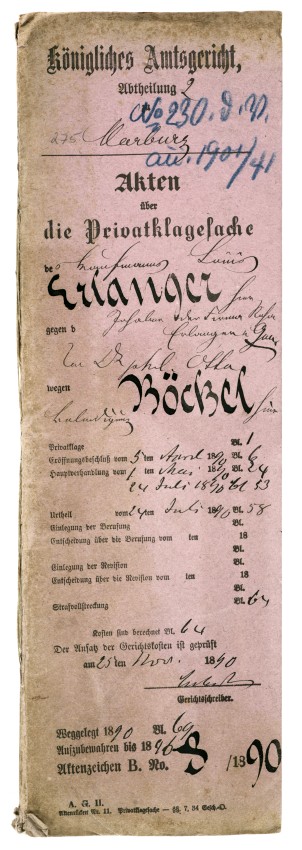 Königliches Amtsgericht,
Abtheilung 2
No 230. d. V.
275 Marburg
au. 1901/41
Akten
über
die Privatklagesache
des Kaufmanns Louis
Erlanger hier
Inhaber der Firma
gegen d Erlanger
Dr phil. Otto
wegen
Böckel hier
Beleidigung
Privatklage Bl. 1
Eröffnungsbeschluß vom 5 ten April 1890 Bl. 6
Hauptverhandlung vom 1 ten Mai 1890 Bl. 24
24 Juli 1890 Bl 53
Urtheil vom 24 ten Juli 1890 Bl. 58
Einlegung der Berufung Bl.
Entscheidung über die Berufung vom ten 18
Bl.
Einlegung der Revision Bl.
Entscheidung über die Revision vom ten 18
Bl.
Strafvollstreckung Bl. 64
Kosten sind berechnet Bl. 64
Der Ansatz der Gerichtskosten ist geprüft
am 25 ten Nov. 1890
Gerichtsschreiber.
Weggelegt 1890 Bl. 69
Aufzubewahren bis 1896
Aktenzeichen B. No. 8 /1890
A. G. II.
Aktendeckel No. 11. Privatklagesache — 15. 7. 84 Gesch.-O.